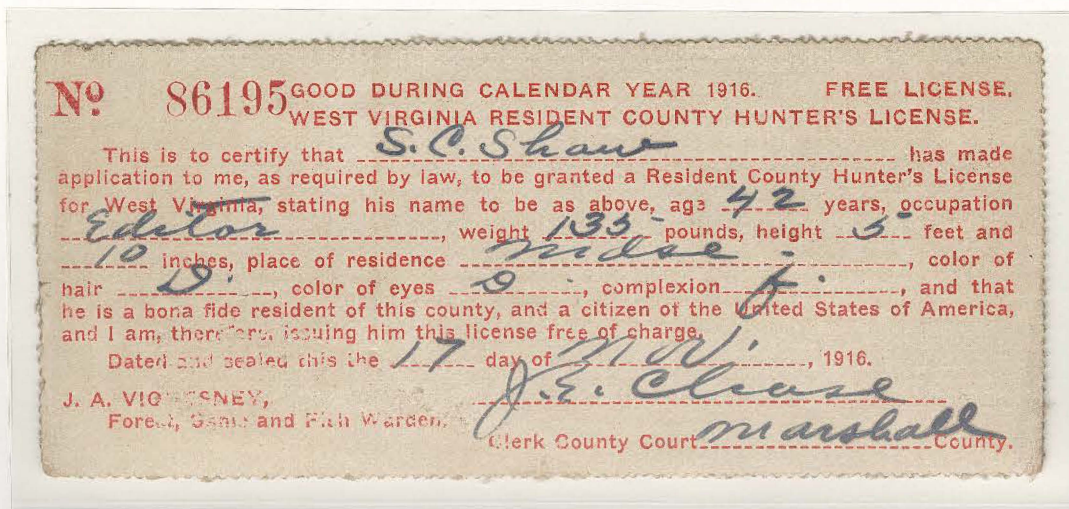 No 86195 GOOD DURING CALENDAR YEAR 1916. FREE LICENSE.
WEST VIRGINIA RESIDENT COUNTY HUNTER'S LICENSE.
This is to certify that S. C. Shaw has made
application to me, as required by law, to be granted a Resident County Hunter's License
for West Virginia, stating his name to be as above, age 42 years, occupation
Editor, weight 135 pounds, height 5 feet and
10 inches, place of residence Mdse, color of
hair D., color of eyes D, complexion f., and that
he is a bona fide resident of this county, and a citizen of the United States of America,
and I am, therefore, issuing him this license free of charge.
Dated and sealed this the 17 day of Nov., 1916.
J. A. VIQUESNEY, J. E. Chase
Forest, Game and Fish Warden.
Clerk County Court Marshall County.